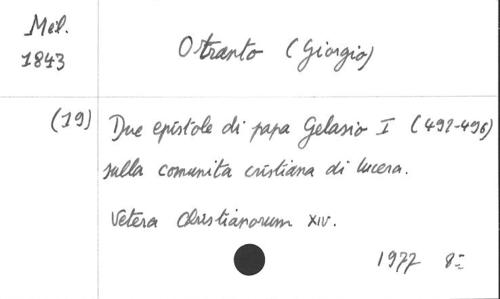 Mél.
1843
Otranto (Giorgio)
(19) Due epistole di papa Gelasio I (492-496)
sulla comunita cristiana di lucera.
Vetera Christianorum XIV.
1977 8=